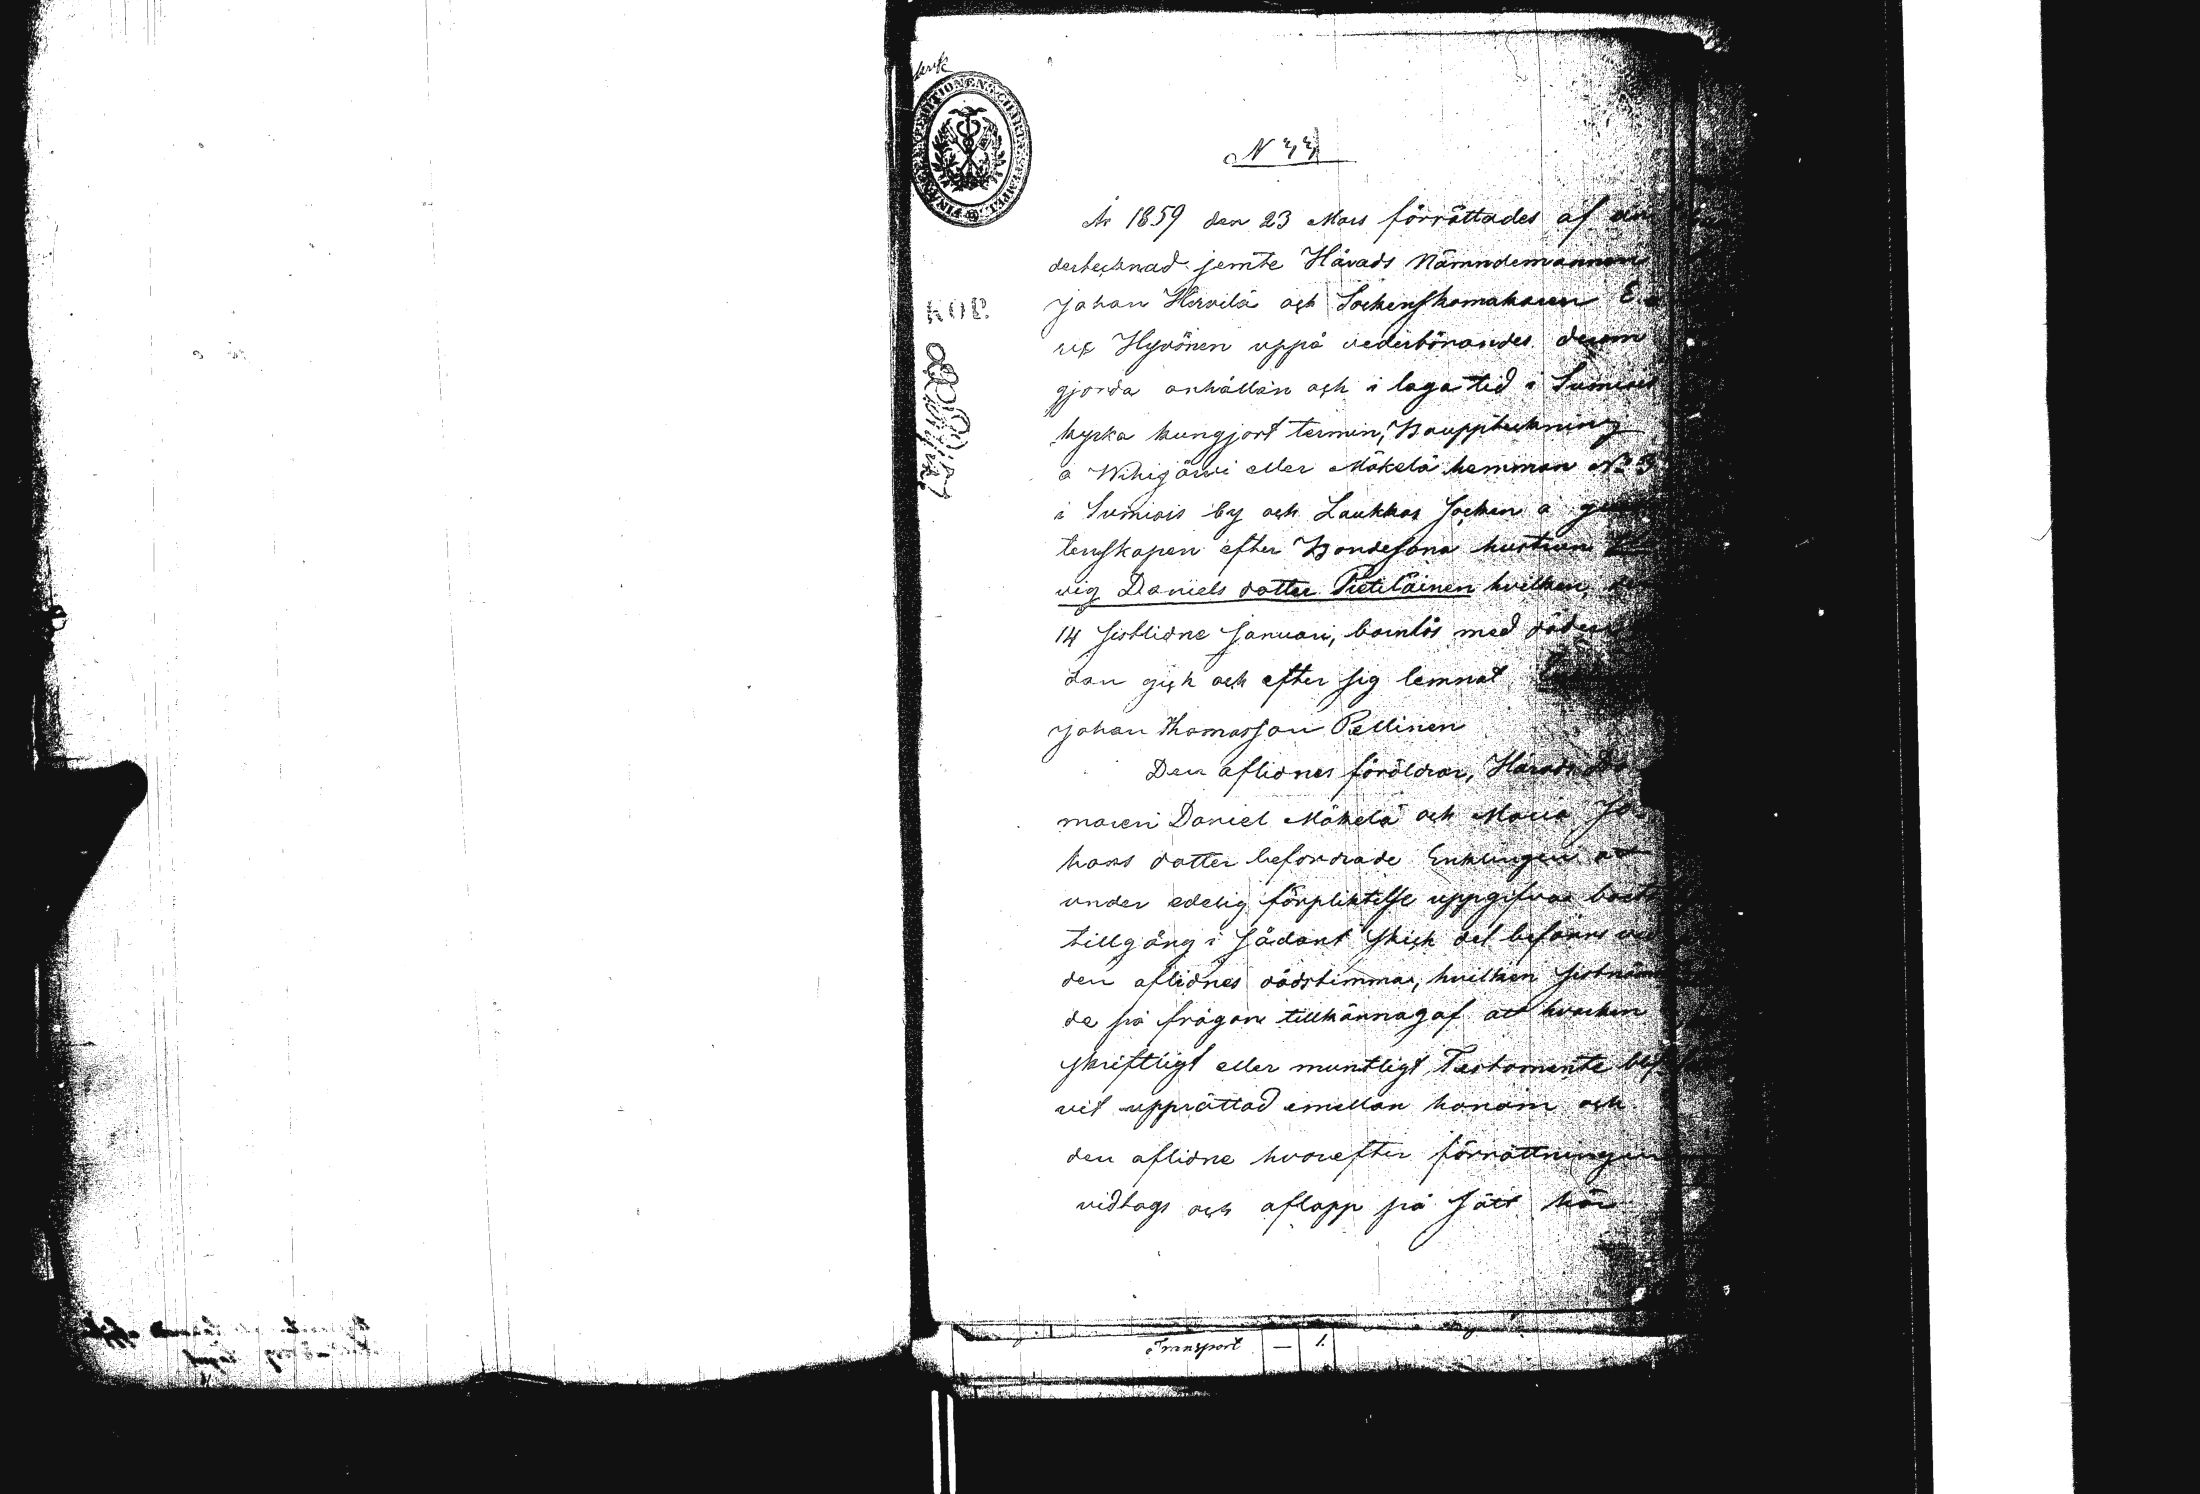 N 44
År 1859 den 23 Mars förrättades af un
dertecknad jemte Härads Nämndemannen
Johan Hirvilä och Sockenskomakaren E
ric Hyvönen uppå vederbörandes derom
gjorda anhållan och i laga tid i Sumiais
kyrka kungjort termin, Bouppteckning
å Wihijärvi eller Mäkelä hemman No 3
i Sumiais by och Laukkas Socken å
tenskapen efter Bondesona hustrun
vig Daniels dotter Pietiläinen hvilken
14 sistlidne Januari, barnlös med döden
dan gick och efter sig lemnat
Johan Thomasson Pellinen
Den aflidnes föräldrar, Härads Do
maren Daniel Mäkelä och Maria Jo
hans dotter befordrade Enklingen att
under edelig förpliktelse uppgifva boets
tillgång i sådant skick det befanns vid
den aflidnes dödstimma, hvilken sistnäm
de på frågan tillkännagaf att hvarken
skriftligt eller muntligt Testamente blif
vit upprättad emellan honom och
den aflidne hvarefter förrättningen
vidtogs och aflopp på sätt här
Transport — 1.